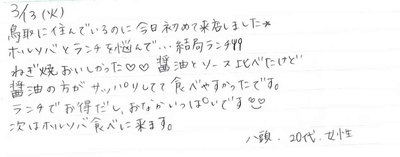 3/13(火)
鳥取に住んでいるのに今日初めて来店しました★
ホルソバとランチを悩んで…結局ランチ!!
ねぎ焼おいしかった♡♡ 醤油とソース比べたけど
醤油の方がサッパリしてて食べやすかったです。
ランチでお得だし、おなかいっぱいです
次はホルソバ食べに来ます。
八頭. 20代. 女性